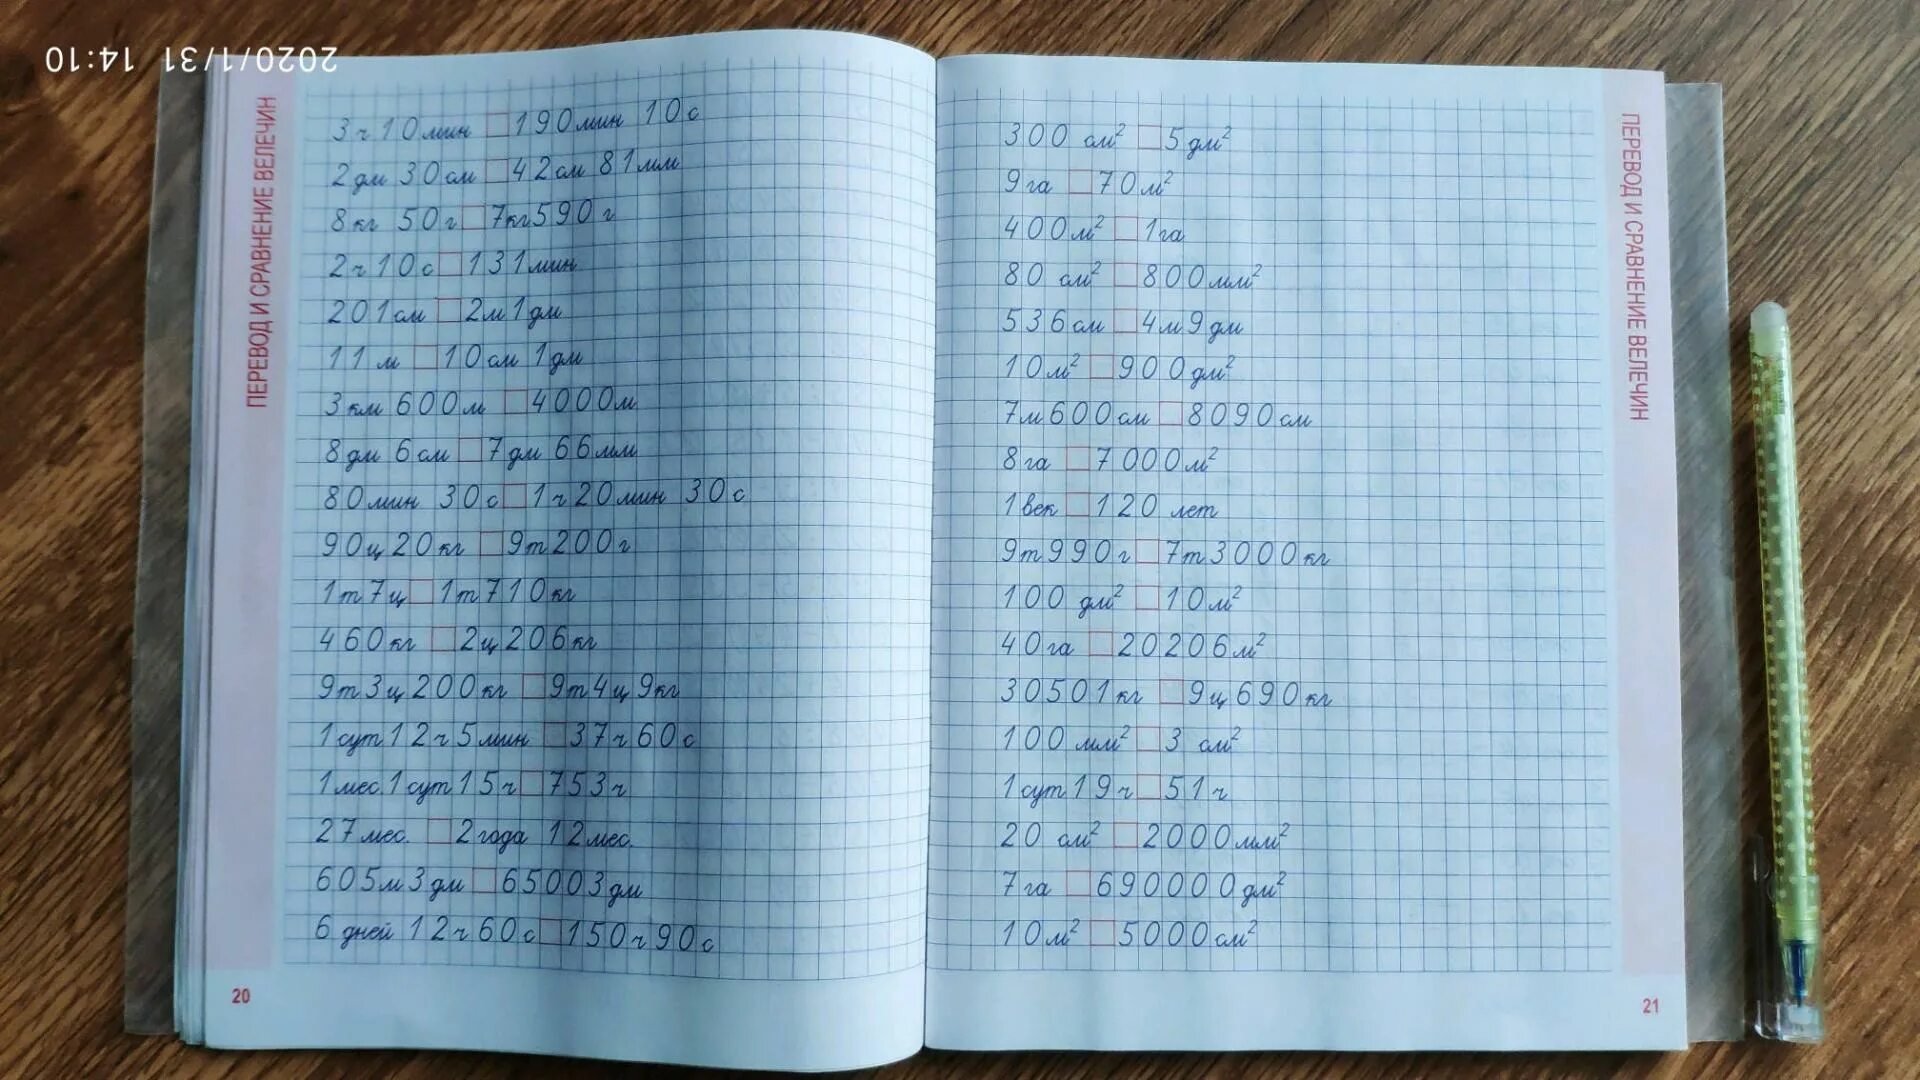 2020/1/31 14:10
ПЕРЕВОД И СРАВНЕНИЕ ВЕЛЕЧИН
3ч10мин □ 190мин 10с
2дм 30см □ 42см 81мм
8кг 50г □ 7кг590г
2ч10с □ 131мин
201см □ 2м1дм
11м □ 10см 1дм
3км 600м □ 4000м
8дм 6см □ 7дм 66мм
80мин 30с □ 1ч20мин 30с
90ц20кг □ 9т200г
1т7ц □ 1т710кг
460кг □ 2ц206кг
9т3ц200кг □ 9т4ц9кг
1сут12ч5мин □ 37ч60с
1мес.1сут15ч □ 753ч
27мес. □ 2года 12мес.
605м3дм □ 65003дм
6 дней 12ч60с □ 150ч90с
20
300 см² □ 5дм²
9га □ 70м²
400м² □ 1га
80 см² □ 800мм²
536см □ 4м9дм
10м² □ 900дм²
7м600см □ 8090см
8га □ 7000м²
1век □ 120 лет
9т990г □ 7т3000кг
100 дм² □ 10м²
40га □ 20206м²
30501кг □ 9ц690кг
100 мм² □ 3 см²
1сут19ч □ 51ч
20 см² □ 2000мм²
7га □ 690000дм²
10м² □ 5000см²
ПЕРЕВОД И СРАВНЕНИЕ ВЕЛЕЧИН
21